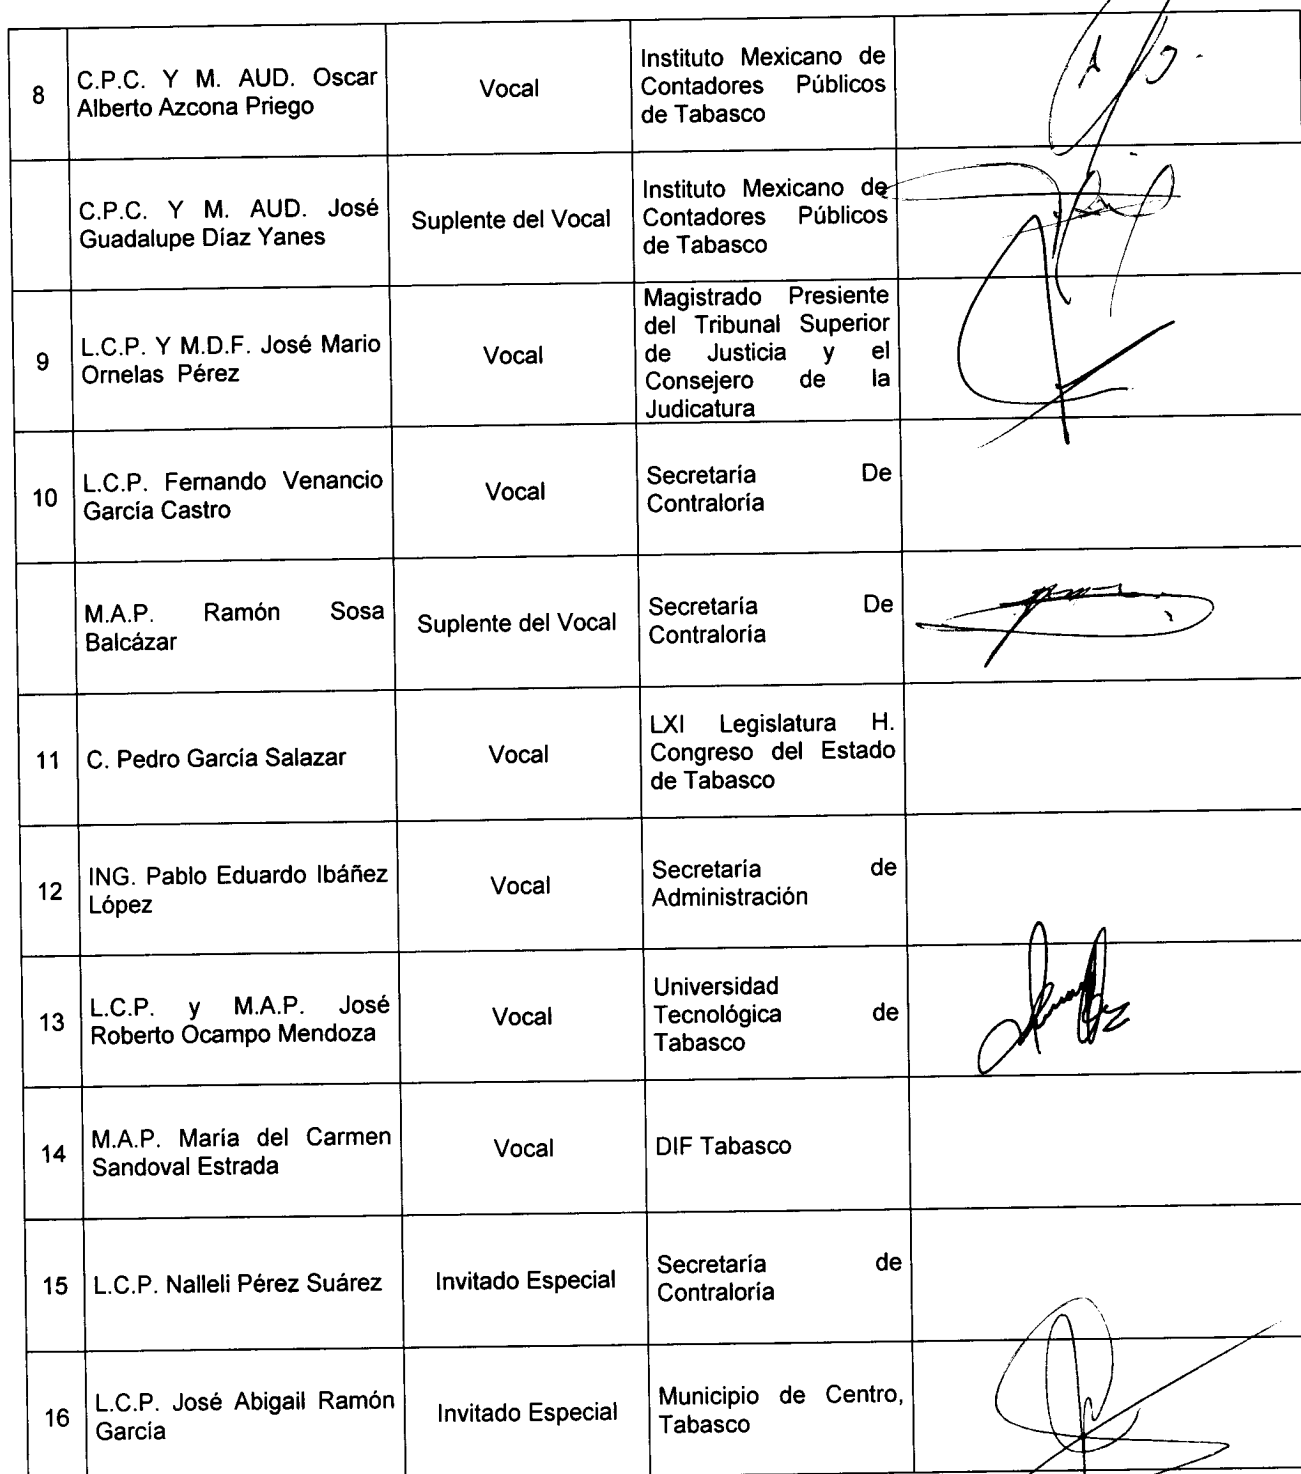 8
C.P.C. Y M. AUD. Oscar
Alberto Azcona Priego
Vocal
Instituto Mexicano de
Contadores Públicos
de Tabasco
C.P.C. Y M. AUD. José
Guadalupe Díaz Yanes
Suplente del Vocal
Instituto Mexicano de
Contadores Públicos
de Tabasco
9
L.C.P. Y M.D.F. José Mario
Ornelas Pérez
Vocal
Magistrado Presiente
del Tribunal Superior
de Justicia y el
Consejero de la
Judicatura
10
L.C.P. Fernando Venancio
García Castro
Vocal
Secretaría De
Contraloría
M.A.P. Ramón Sosa
Balcázar
Suplente del Vocal
Secretaría De
Contraloría
11
C. Pedro García Salazar
Vocal
LXI Legislatura H.
Congreso del Estado
de Tabasco
12
ING. Pablo Eduardo Ibáñez
López
Vocal
Secretaría de
Administración
13
L.C.P. y M.A.P. José
Roberto Ocampo Mendoza
Vocal
Universidad
Tecnológica de
Tabasco
14
M.A.P. María del Carmen
Sandoval Estrada
Vocal
DIF Tabasco
15
L.C.P. Nalleli Pérez Suárez
Invitado Especial
Secretaría de
Contraloría
16
L.C.P. José Abigail Ramón
García
Invitado Especial
Municipio de Centro,
Tabasco